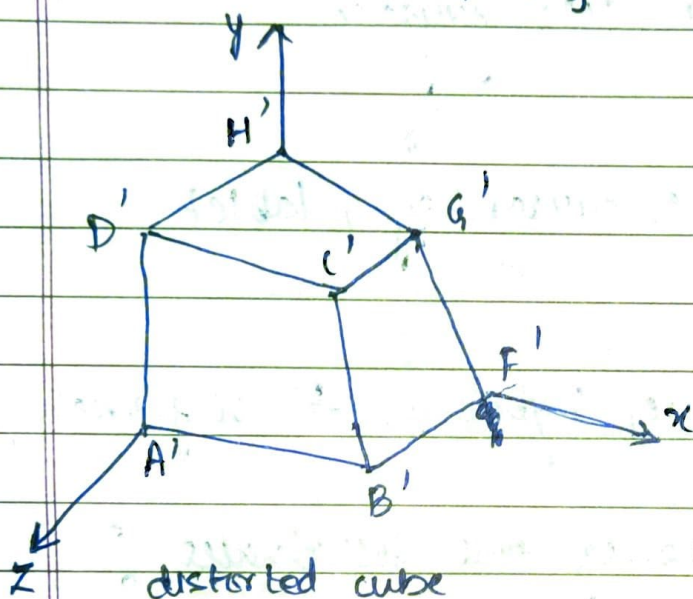 y
H'
D'
G'
C'
F'
x
A'
B'
Z
distorted cube